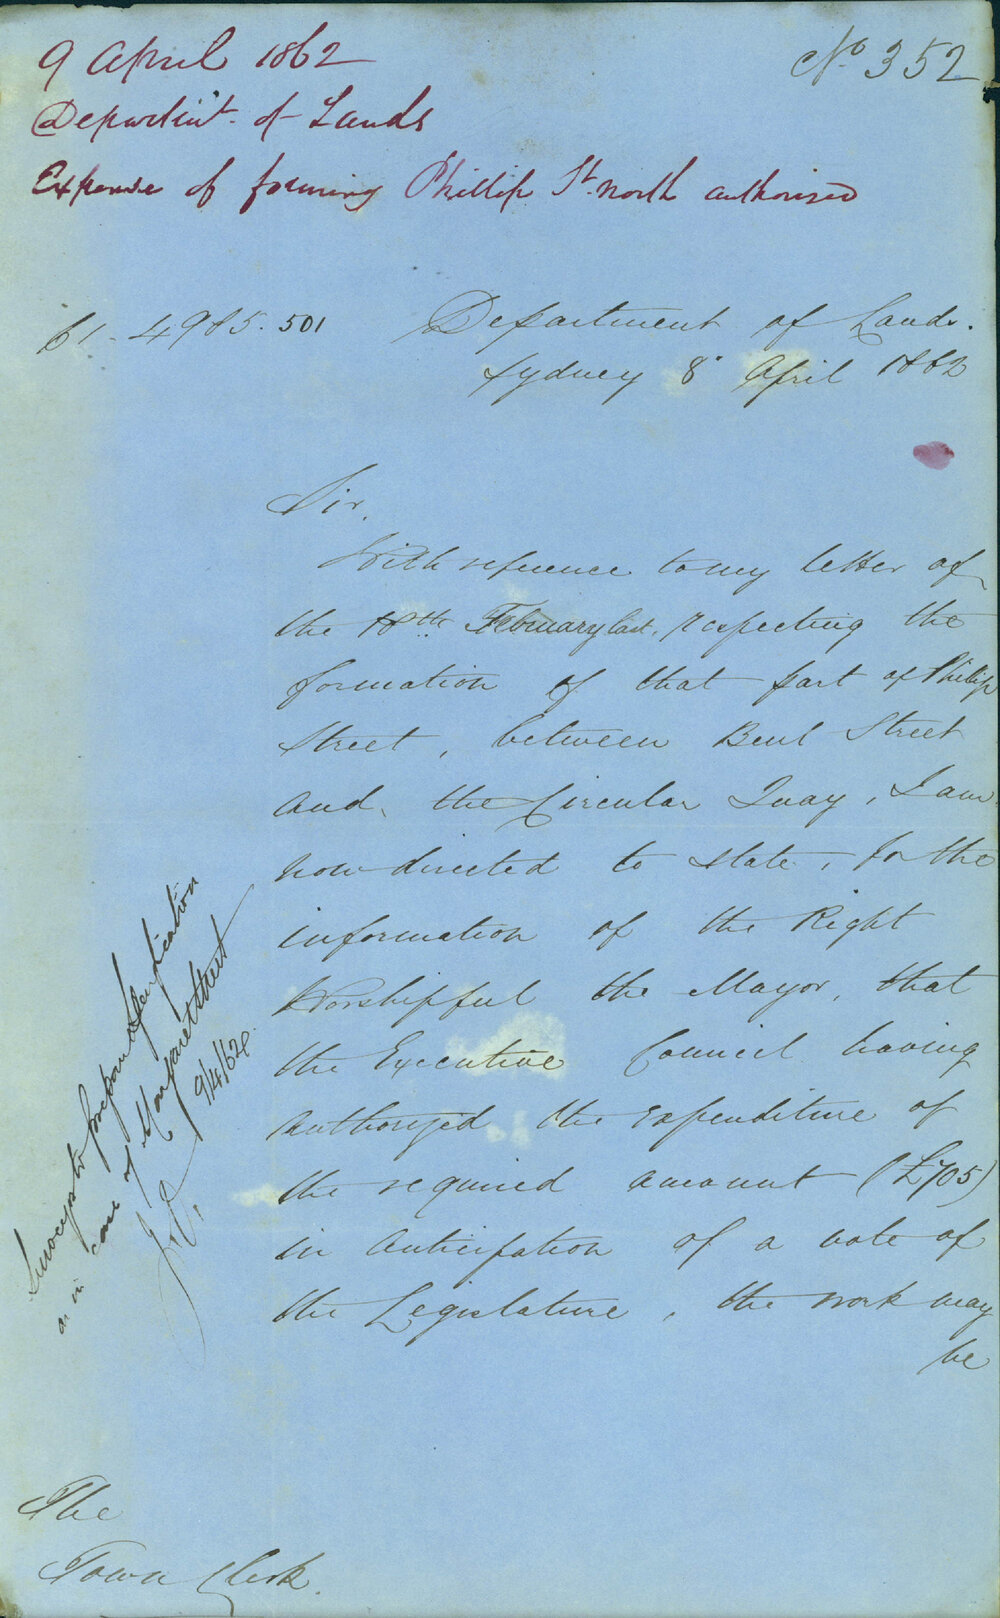 9 April 1862
No 352
Departm't of Lands
Expense of forming Phillip St. north authorised
61-4985.501
Department of Lands.
Sydney 8 April 1862
Sir,
With reference to my letter of
the 18th February last, respecting the
formation of that part of Philip
Street, between Bent Street
and the Circular Quay, I am
now directed to state, for the
information of the Right
Worshipful the Mayor, that
the Executive Council having
authorized the expenditure of
the required amount (£705)
in anticipation of a vote of
the Legislature, the work may
be
Surveyor to prepare specification
as in case of Margaret Street
9/4/62
The
Town Clerk.